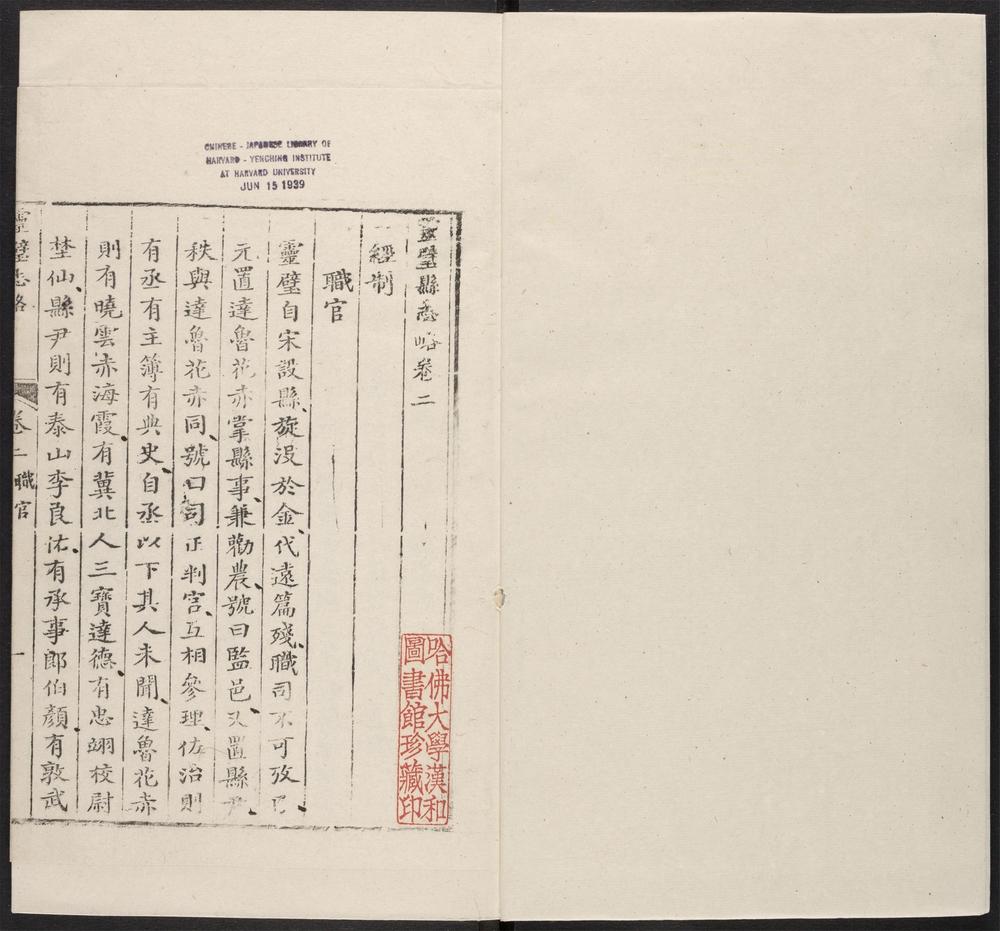 CHINESE - JAPANESE LIBRARY OF
HARVARD - YENCHING INSTITUTE
AT HARVARD UNIVERSITY
JUN 15 1939
靈璧縣志略卷二
經制
職官
靈璧自宋設縣、旋没於金、代遠篇殘、職司不可攷已、
元置達魯花赤掌縣事、兼勸農、號曰監邑、又置縣尹、
秩與達魯花赤同、號曰司正判官、互相參理、佐治則
有丞有主簿有典史、自丞以下其人未聞、達魯花赤
則有曉雲赤海霞、有冀北人三寶達德、有忠翊校尉
埜仙、縣尹則有泰山李良佑、有承事郎伯顏、有敦武
靈璧志略 卷二 職官 一
哈佛大學漢和
圖書館珍藏印